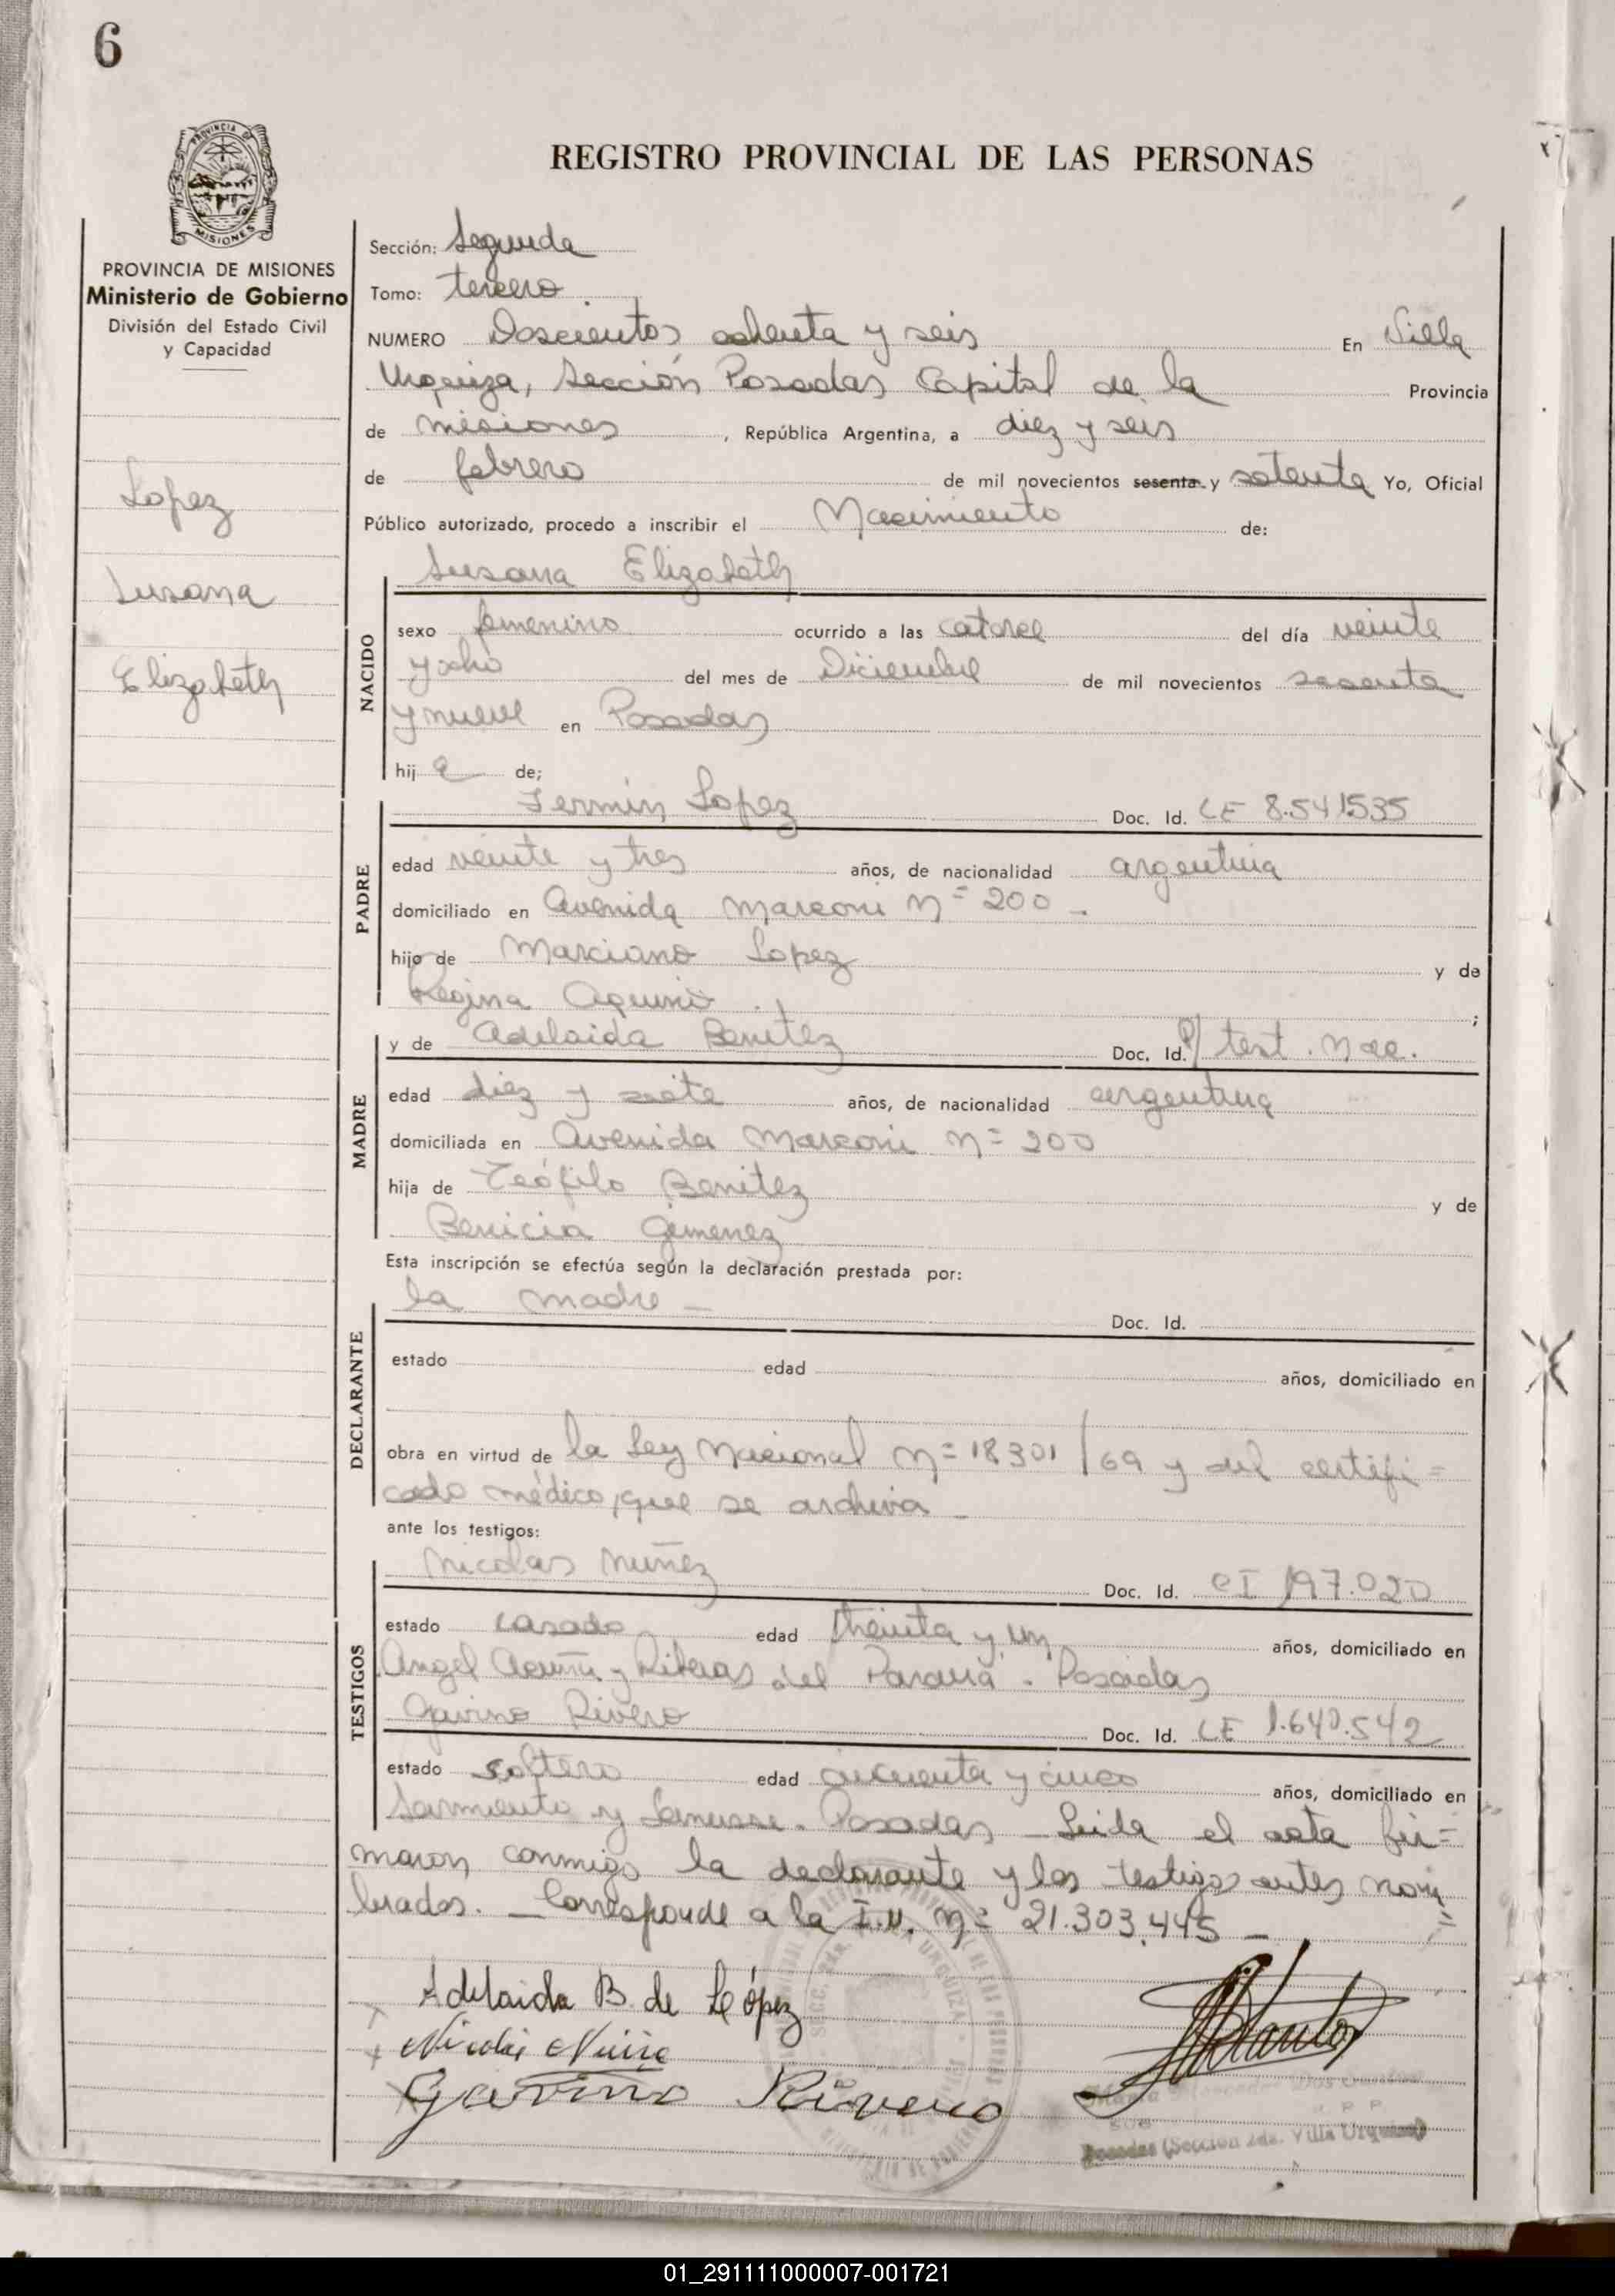 6
REGISTRO PROVINCIAL DE LAS PERSONAS
PROVINCIA DE MISIONES
Ministerio de Gobierno
División del Estado Civil
y Capacidad
Lopez
Susana
Elizabeth
Sección: Segunda
Tomo: tercero
NUMERO Doscientos ochenta y seis En Villa
Urquiza, Sección Posadas Capital de la Provincia
de misiones, República Argentina, a diez y seis
de febrero de mil novecientos sesenta y setenta Yo, Oficial
Público autorizado, procedo a inscribir el Nacimiento de:
Susana Elizabeth
NACIDO
sexo femenino ocurrido a las catorce del día veinte
y ocho del mes de Diciembre de mil novecientos sesenta
y nueve en Posadas
hij a de;
PADRE
Fermin Lopez Doc. Id. LE 8.541535
edad veinte y tres años, de nacionalidad argentina
domiciliado en Avenida Marconi N= 200 -
hijo de Marciano Lopez y de
Regina Aquino ;
MADRE
y de Adelaida Benitez Doc. Id. P/ test. Nac.
edad diez y siete años, de nacionalidad argentina
domiciliada en Avenida Marconi N= 200
hija de Teófilo Benitez y de
Benicia Gimenez
Esta inscripción se efectúa según la declaración prestada por:
DECLARANTE
la madre - Doc. Id.
estado edad años, domiciliado en
obra en virtud de la Ley Nacional N= 18.301/69 y del certifi=
cado médico, que se archiva -
ante los testigos:
TESTIGOS
Nicolas Nuñez Doc. Id. CI 197.020
estado casado edad treinta y un años, domiciliado en
Angel Acuña y Riberas del Paraná. Posadas
Gavino Rivero Doc. Id. LE 1.640.542
estado soltero edad cincuenta y cinco años, domiciliado en
Sarmiento y Lanusse. Posadas - Leida el acta fir=
maron conmigo la declarante y los testigos antes nom=
brados. - Corresponde a la I.N. N= 21.303.445 -
Adelaida B. de López
Nicolas Nuñez
Gavino Rivero
Posadas (Sección 2da. Villa Urquiza)
01_291111000007-001721